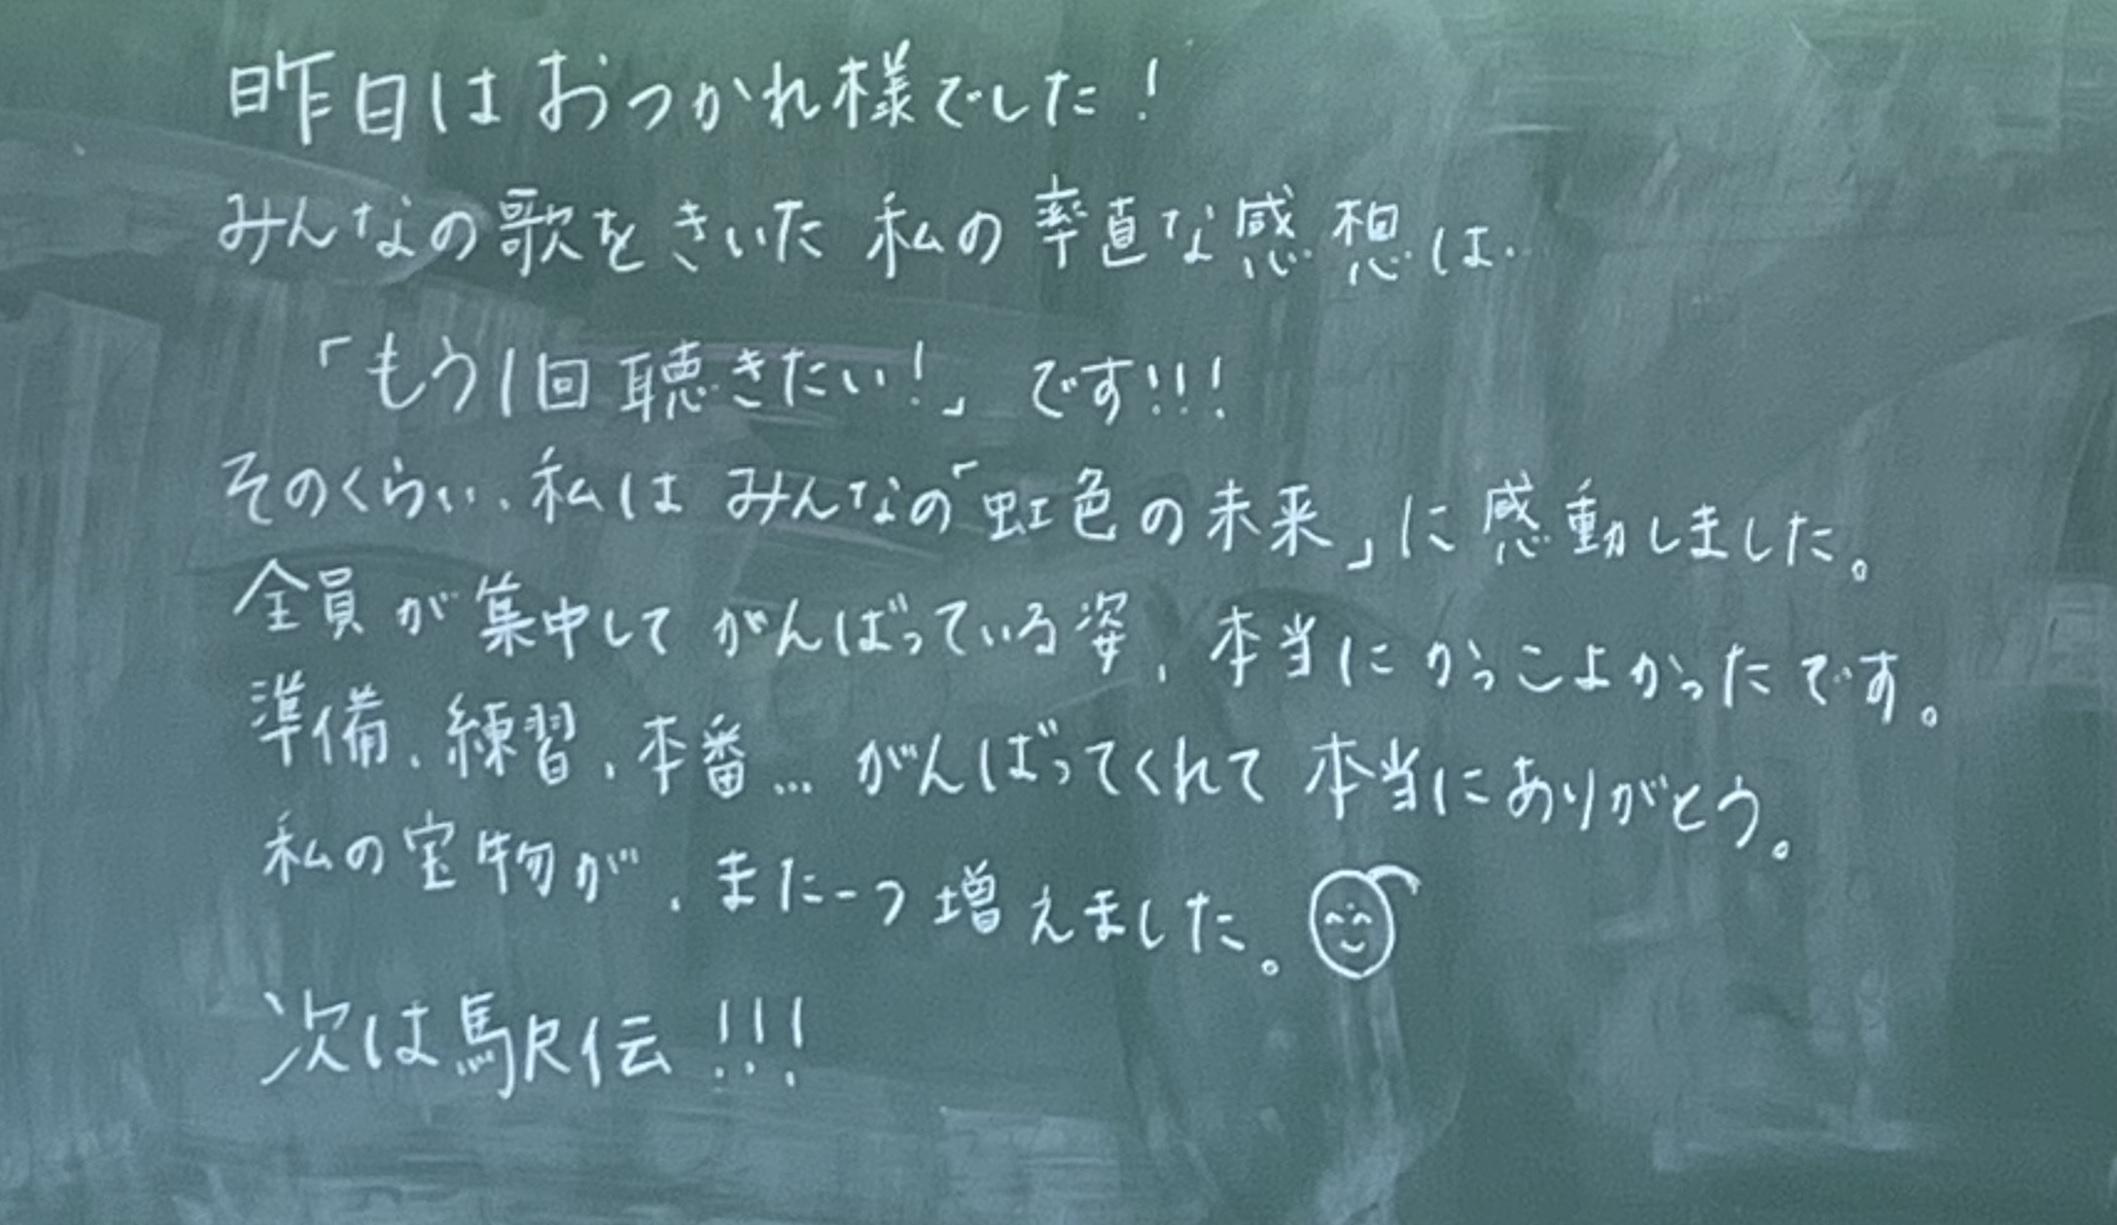 昨日はおつかれ様でした!
みんなの歌をきいた私の率直な感想は.
「もう1回聴きたい!」です!!!
そのくらい、私はみんなの「虹色の未来」に感動しました。
全員が集中してがんばっている姿、本当にかっこよかったです。
準備、練習、本番…がんばってくれて本当にありがとう。
私の宝物が、また一つ増えました。
次は駅伝!!!